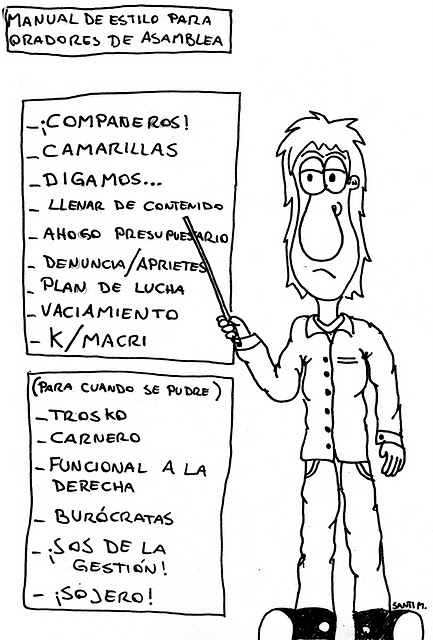 MANUAL DE ESTILO PARA
ORADORES DE ASAMBLEA
- ¡COMPAÑEROS!
- CAMARILLAS
- DIGAMOS...
- LLENAR DE CONTENIDO
- AHOGO PRESUPUESTARIO
- DENUNCIA/APRIETES
- PLAN DE LUCHA
- VACIAMIENTO
- K/MACRI
(PARA CUANDO SE PUDRE)
- TROSKO
- CARNERO
- FUNCIONAL A LA
DERECHA
- BURÓCRATAS
- ¡SOS DE LA
GESTIÓN!
- ¡SOJERO!
SANTI M.